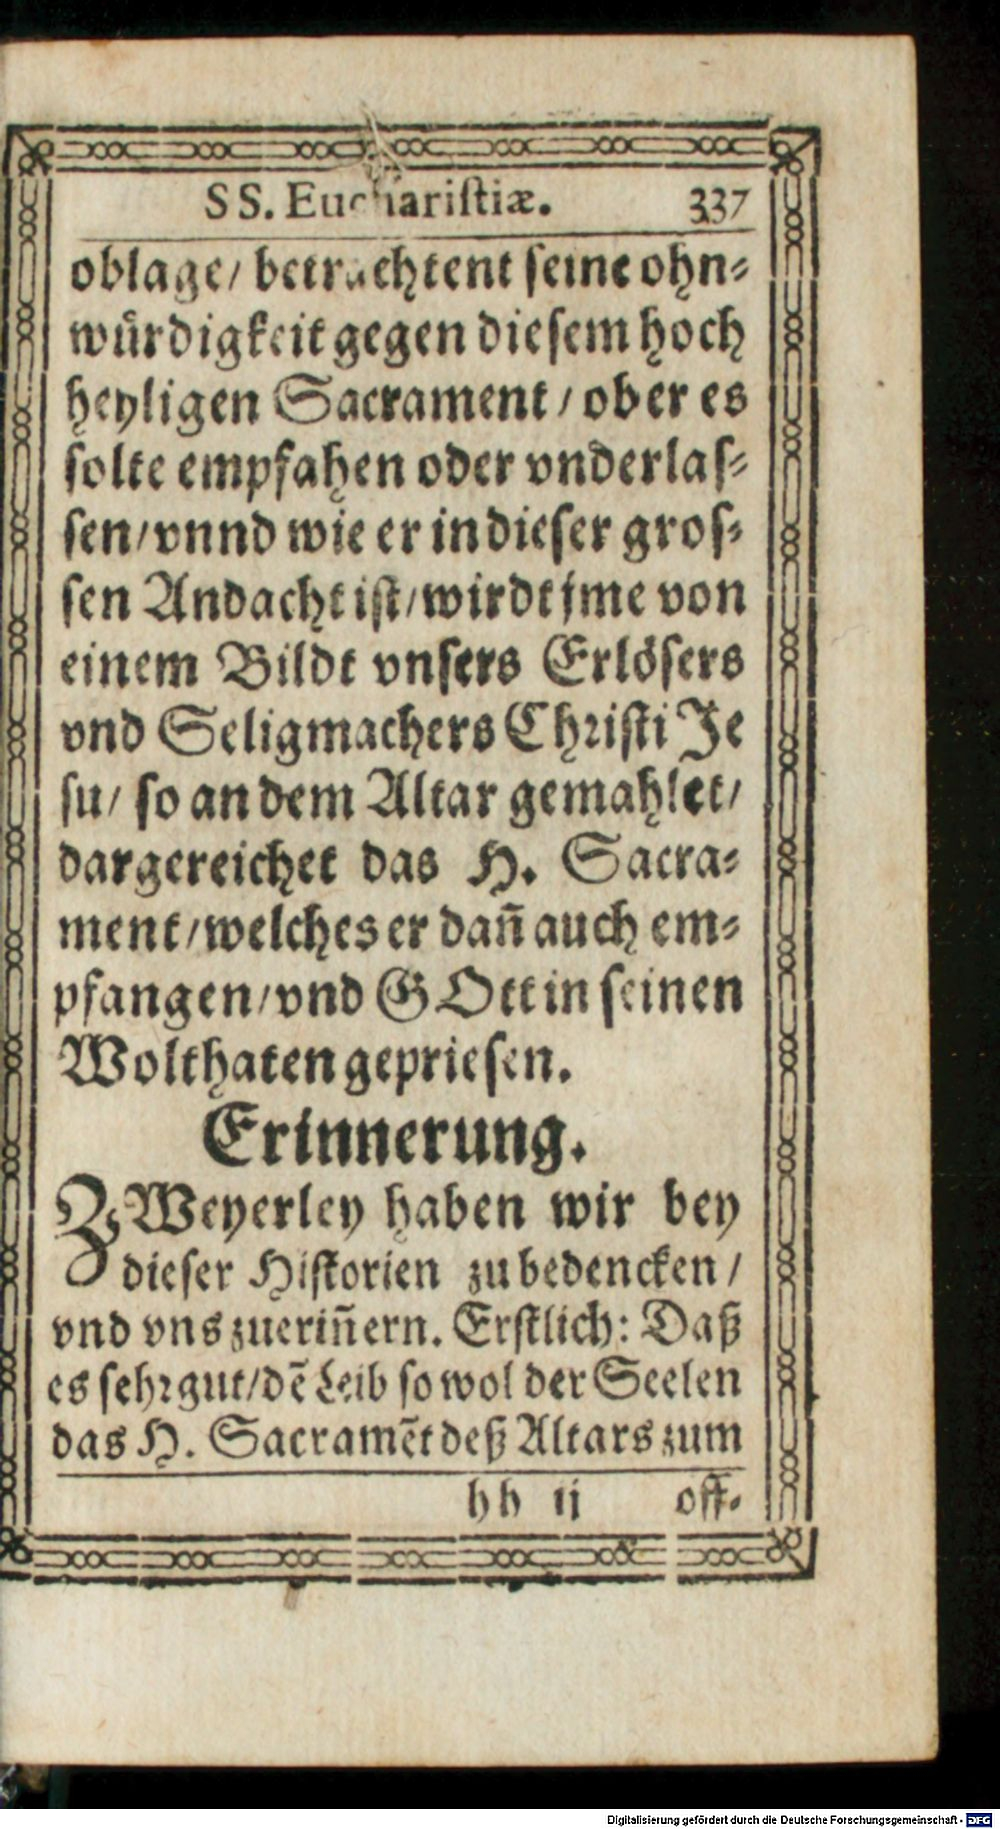 SS. Euchariſtiæ. 337
oblage/ betrachtent ſeine ohn⸗
würdigkeit gegen dieſem hoch
heyligen Sacrament / ob er es
ſolte empfahen oder vnderlaſ⸗
ſen/ vnnd wie er in dieſer groſ⸗
ſen Andacht iſt/ wirdt jme von
einem Bildt vnſers Erlöſers
vnd Seligmachers Chriſti Je
ſu/ ſo an dem Altar gemahlet/
dargereichet das H. Sacra⸗
ment/ welches er dañ auch em⸗
pfangen/ vnd GOtt in ſeinen
Wolthaten geprieſen.
Erinnerung.
ZWeyerley haben wir bey
dieſer Hiſtorien zu bedencken /
vnd vns zueriñern. Erſtlich: Daß
es ſehr gut/ dẽ Leib ſo wol der Seelen
das H. Sacramẽt deß Altars zum
hh ij off⸗
Digitalisierung gefördert durch die Deutsche Forschungsgemeinschaft - DFG